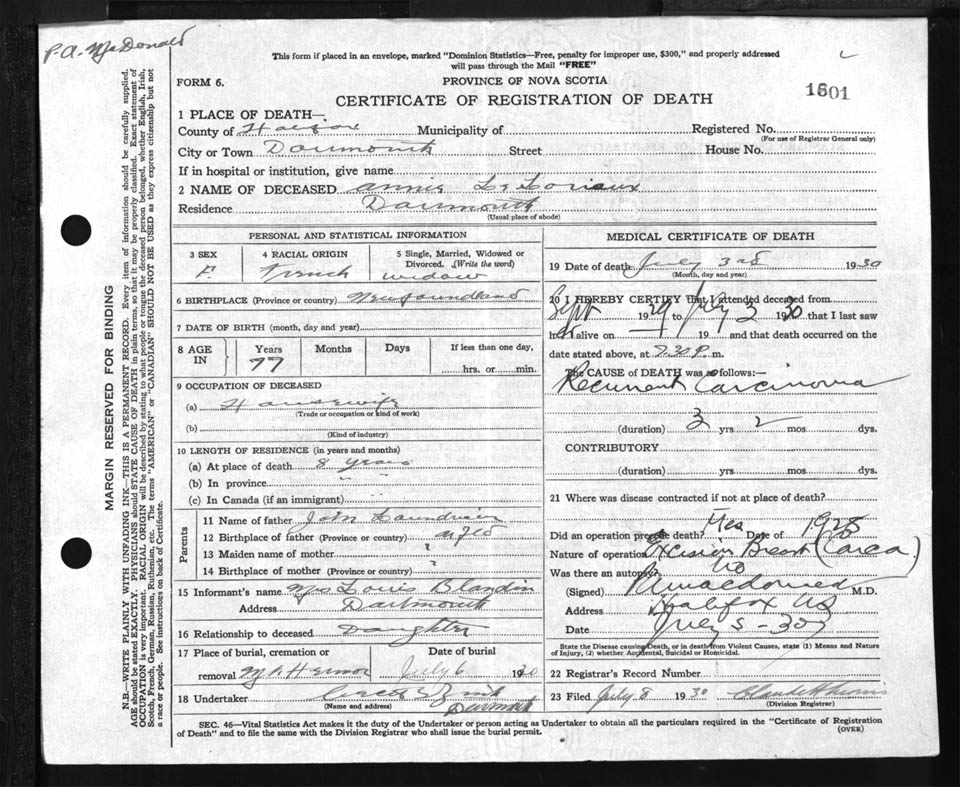 P.A. MacDonald
This form if placed in an envelope, marked "Dominion Statistics—Free, penalty for improper use, $300," and properly addressed
will pass through the Mail "FREE"
FORM 6.
PROVINCE OF NOVA SCOTIA
CERTIFICATE OF REGISTRATION OF DEATH
1601
1 PLACE OF DEATH—
County of Halifax Municipality of Registered No.
(For use of Registrar General only)
City or Town Dartmouth Street House No.
If in hospital or institution, give name
2 NAME OF DECEASED Annie
Residence Dartmouth
(Usual place of abode)
PERSONAL AND STATISTICAL INFORMATION
3 SEX 4 RACIAL ORIGIN 5 Single, Married, Widowed or
Divorced. (Write the word)
F French widow
6 BIRTHPLACE (Province or country) Newfoundland
7 DATE OF BIRTH (month, day and year)
8 AGE IN Years Months Days If less than one day,
77 hrs. or min.
9 OCCUPATION OF DECEASED
(a) Housewife
(Trade or occupation or kind of work)
(b)
(Kind of industry)
10 LENGTH OF RESIDENCE (in years and months)
(a) At place of death 8 years
(b) In province " "
(c) In Canada (if an immigrant)
Parents
11 Name of father John
12 Birthplace of father (Province or country) Nfld
13 Maiden name of mother ?
14 Birthplace of mother (Province or country) ?
15 Informant's name Mrs Louis Blandin
Address Dartmouth
16 Relationship to deceased Daughter
17 Place of burial, cremation or Date of burial
removal Mt Hermon July 6 1930
18 Undertaker
(Name and address) Dartmouth
MEDICAL CERTIFICATE OF DEATH
19 Date of death July 3rd 1930
(Month, day and year)
20 I HEREBY CERTIFY that I attended deceased from
Sept 1929 to July 3 1930 that I last saw
h alive on 19 and that death occurred on
date stated above, at 7.30 P. m.
The CAUSE of DEATH was as follows:—
Recurrent Carcinoma
(duration) 3 yrs 2 mos. dys.
CONTRIBUTORY
(duration) yrs. mos. dys.
21 Where was disease contracted if not at place of death?
Did an operation precede death? Yes Date of 1928
Nature of operation Excision Breast (area)
Was there an autopsy? No
(Signed) M.D.
Address Halifax NS
Date July 5-30
State the Disease causing Death, or in death from Violent Causes, state (1) Means and Nature
of Injury, (2) whether Accidental, Suicidal or Homicidal.
22 Registrar's Record Number
23 Filed July 8 1930
(Division Registrar)
SEC. 46—Vital Statistics Act makes it the duty of the Undertaker or person acting as Undertaker to obtain all the particulars required in the "Certificate of Registration
of Death" and to file the same with the Division Registrar who shall issue the burial permit. (OVER)
MARGIN RESERVED FOR BINDING
N.B.—WRITE PLAINLY WITH UNFADING INK—THIS IS A PERMANENT RECORD. Every item of information should be carefully supplied.
AGE should be stated EXACTLY. PHYSICIANS should STATE CAUSE OF DEATH in plain terms, so that it may be properly classified. Exact statement of
OCCUPATION is very important. RACIAL ORIGIN will be described by stating to what people or tongue the deceased person belonged, whether English, Irish,
Scotch, French, German, Russian, Ruthenian, etc. The terms "AMERICAN" or "CANADIAN" SHOULD NOT BE USED as they express citizenship but not
a race or people. See instructions on back of Certificate.